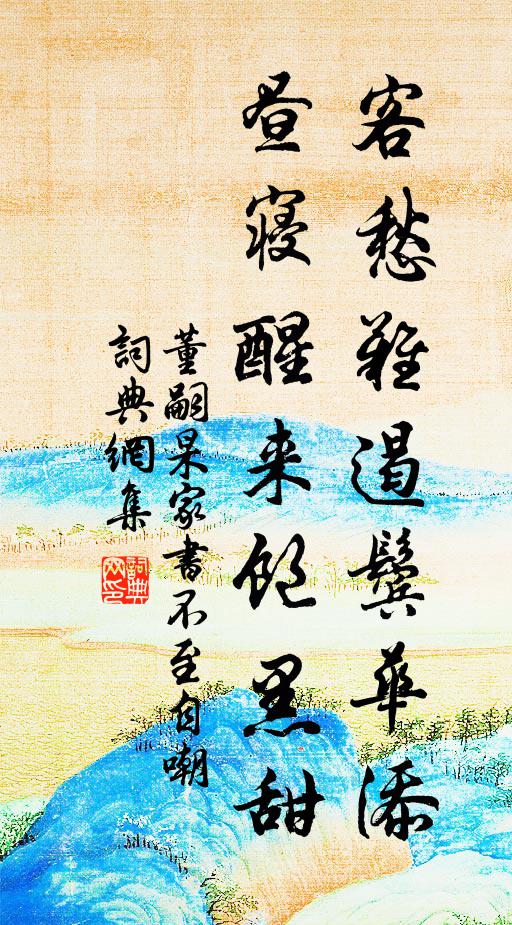 客愁难遏鬓华添
昼寝醒来饱黑甜
董嗣杲家書不至自嘲
詞典網集
詞典网印